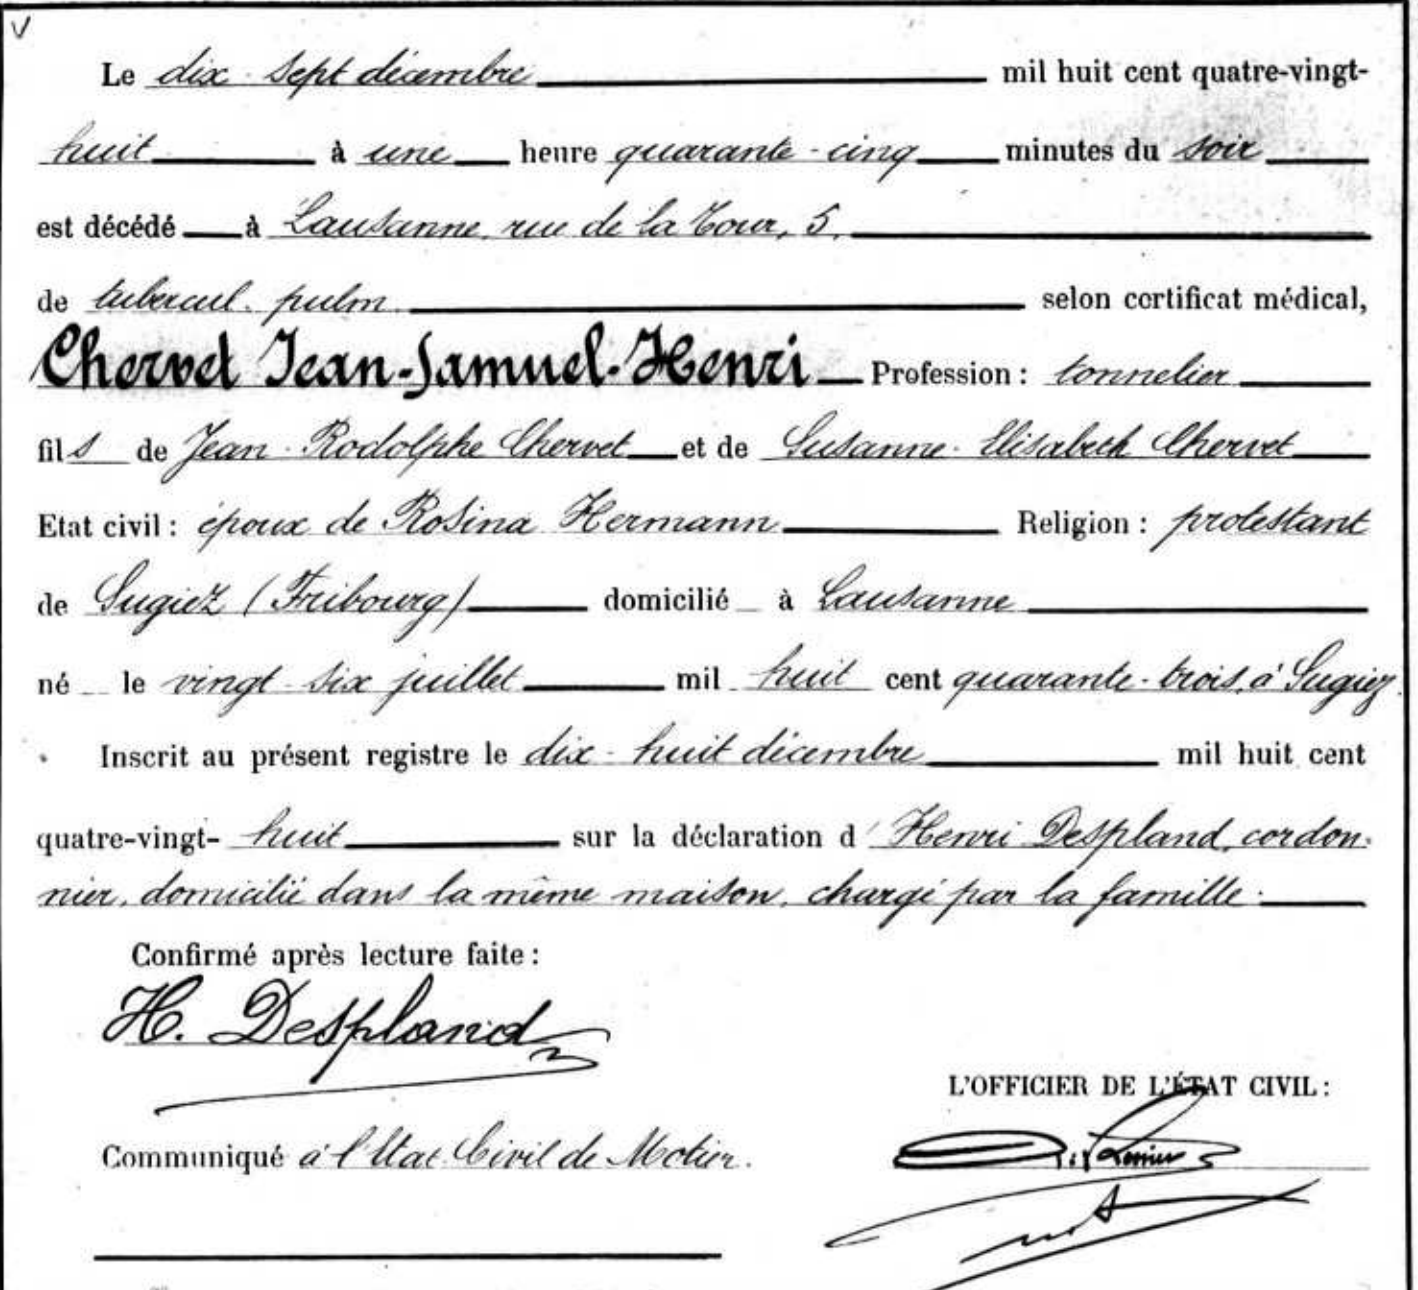 Le dix-sept décembre mil huit cent quatre-vingt-
huit à une heure quarante-cinq minutes du soir
est décédé à Lausanne, rue de la Tour, 5,
de tubercul. pulm. selon certificat médical,
Chervet Jean-Samuel-Henri Profession : tonnelier
fils de Jean-Rodolphe Chervet et de Susanne-Elisabeth Chervet
Etat civil : époux de Rosina Hermann Religion : protestant
de Sugiez (Fribourg) domicilié à Lausanne
né le vingt-six juillet mil huit cent quarante-trois, à Sugiez.
Inscrit au présent registre le dix-huit décembre mil huit cent
quatre-vingt- huit sur la déclaration d' Henri Despland, cordon-
nier, domicilié dans la même maison, chargé par la famille.
Confirmé après lecture faite :
H. Despland
L'OFFICIER DE L'ÉTAT CIVIL :
Communiqué à l'Etat Civil de Motier.